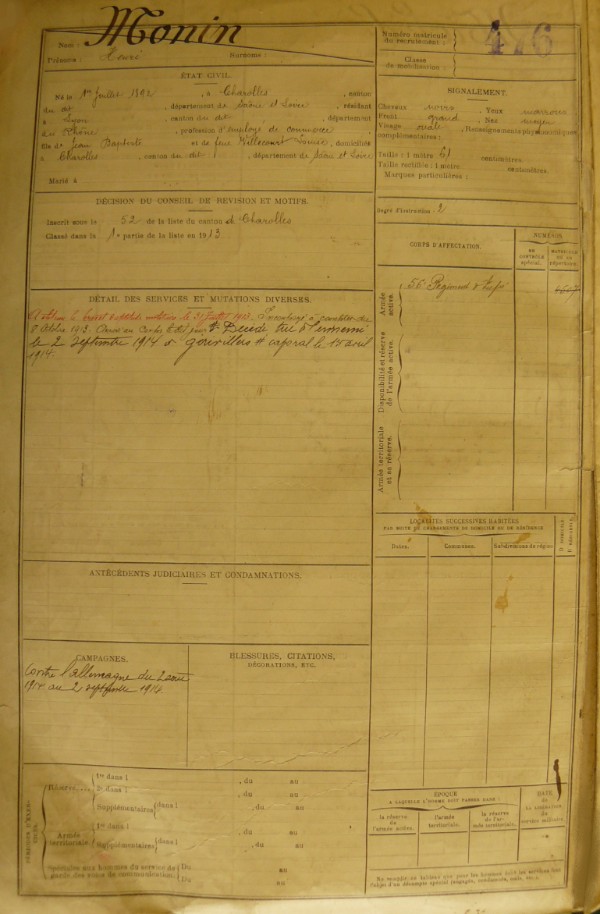 Nom : Monin
Prénoms : Henri Surnoms :
Numéro matricule du recrutement : 476
Classe de mobilisation :
ÉTAT CIVIL.
Né le 1er Juillet 1892, à Charolles, canton
du dit, département de Saône et Loire, résidant
à Lyon canton du dit département
du Rhône, profession d'employé de commerce
fils de Jean Baptiste et de feue domicilié
à Charolles, canton du dit, département de Saône et Loire
Marié à
SIGNALEMENT.
Cheveux noirs, Yeux marrons
Front grand, Nez moyen
Visage ovale, Renseignements physionomiques
complémentaires :
Taille : 1 mètre 61 centimètres.
Taille rectifiée : 1 mètre centimètres.
Marques particulières :
DÉCISION DU CONSEIL DE RÉVISION ET MOTIFS.
Inscrit sous le n° 52 de la liste du canton de Charolles
Classé dans la 1e partie de la liste en 1913
Degré d'instruction : 2
CORPS D'AFFECTATION.
NUMÉROS
AU CONTRÔLE SPÉCIAL.
MATRICULE OU AU RÉPERTOIRE.
Armée active.
56e Régiment d'Infie
Disponibilité et réserve de l'armée active.
Armée territoriale et sa réserve.
DÉTAIL DES SERVICES ET MUTATIONS DIVERSES.
1913. Incorporé à compter du
8 Octobre 1913. dit jour. Décédé tué à l'ennemi
le 2 septembre 1914 à Gerbviller caporal le 15 avril
1914.
LOCALITÉS SUCCESSIVES HABITÉES
PAR SUITE DE CHANGEMENTS DE DOMICILE OU DE RÉSIDENCE
Dates. Communes. Subdivisions de région. D domicile R résidence.
ANTÉCÉDENTS JUDICIAIRES ET CONDAMNATIONS.
CAMPAGNES.
Contre l'allemagne du 2 août
1914 au 2 septembre 1914
BLESSURES, CITATIONS,
DÉCORATIONS, ETC.
PÉRIODES D'EXERCICES
Réserve
1re dans l , du au
2e dans l , du au
Supplémentaires dans l , du au
Armée territoriale
1re dans l , du au
Supplémentaires dans l , du au
Spéciales aux hommes du service de garde des voies de communication. Du au
Du au
ÉPOQUE
À LAQUELLE L'HOMME DOIT PASSER DANS :
la réserve de l'armée active.
l'armée territoriale.
la réserve de l'armée territoriale.
DATE de la libération du service militaire.